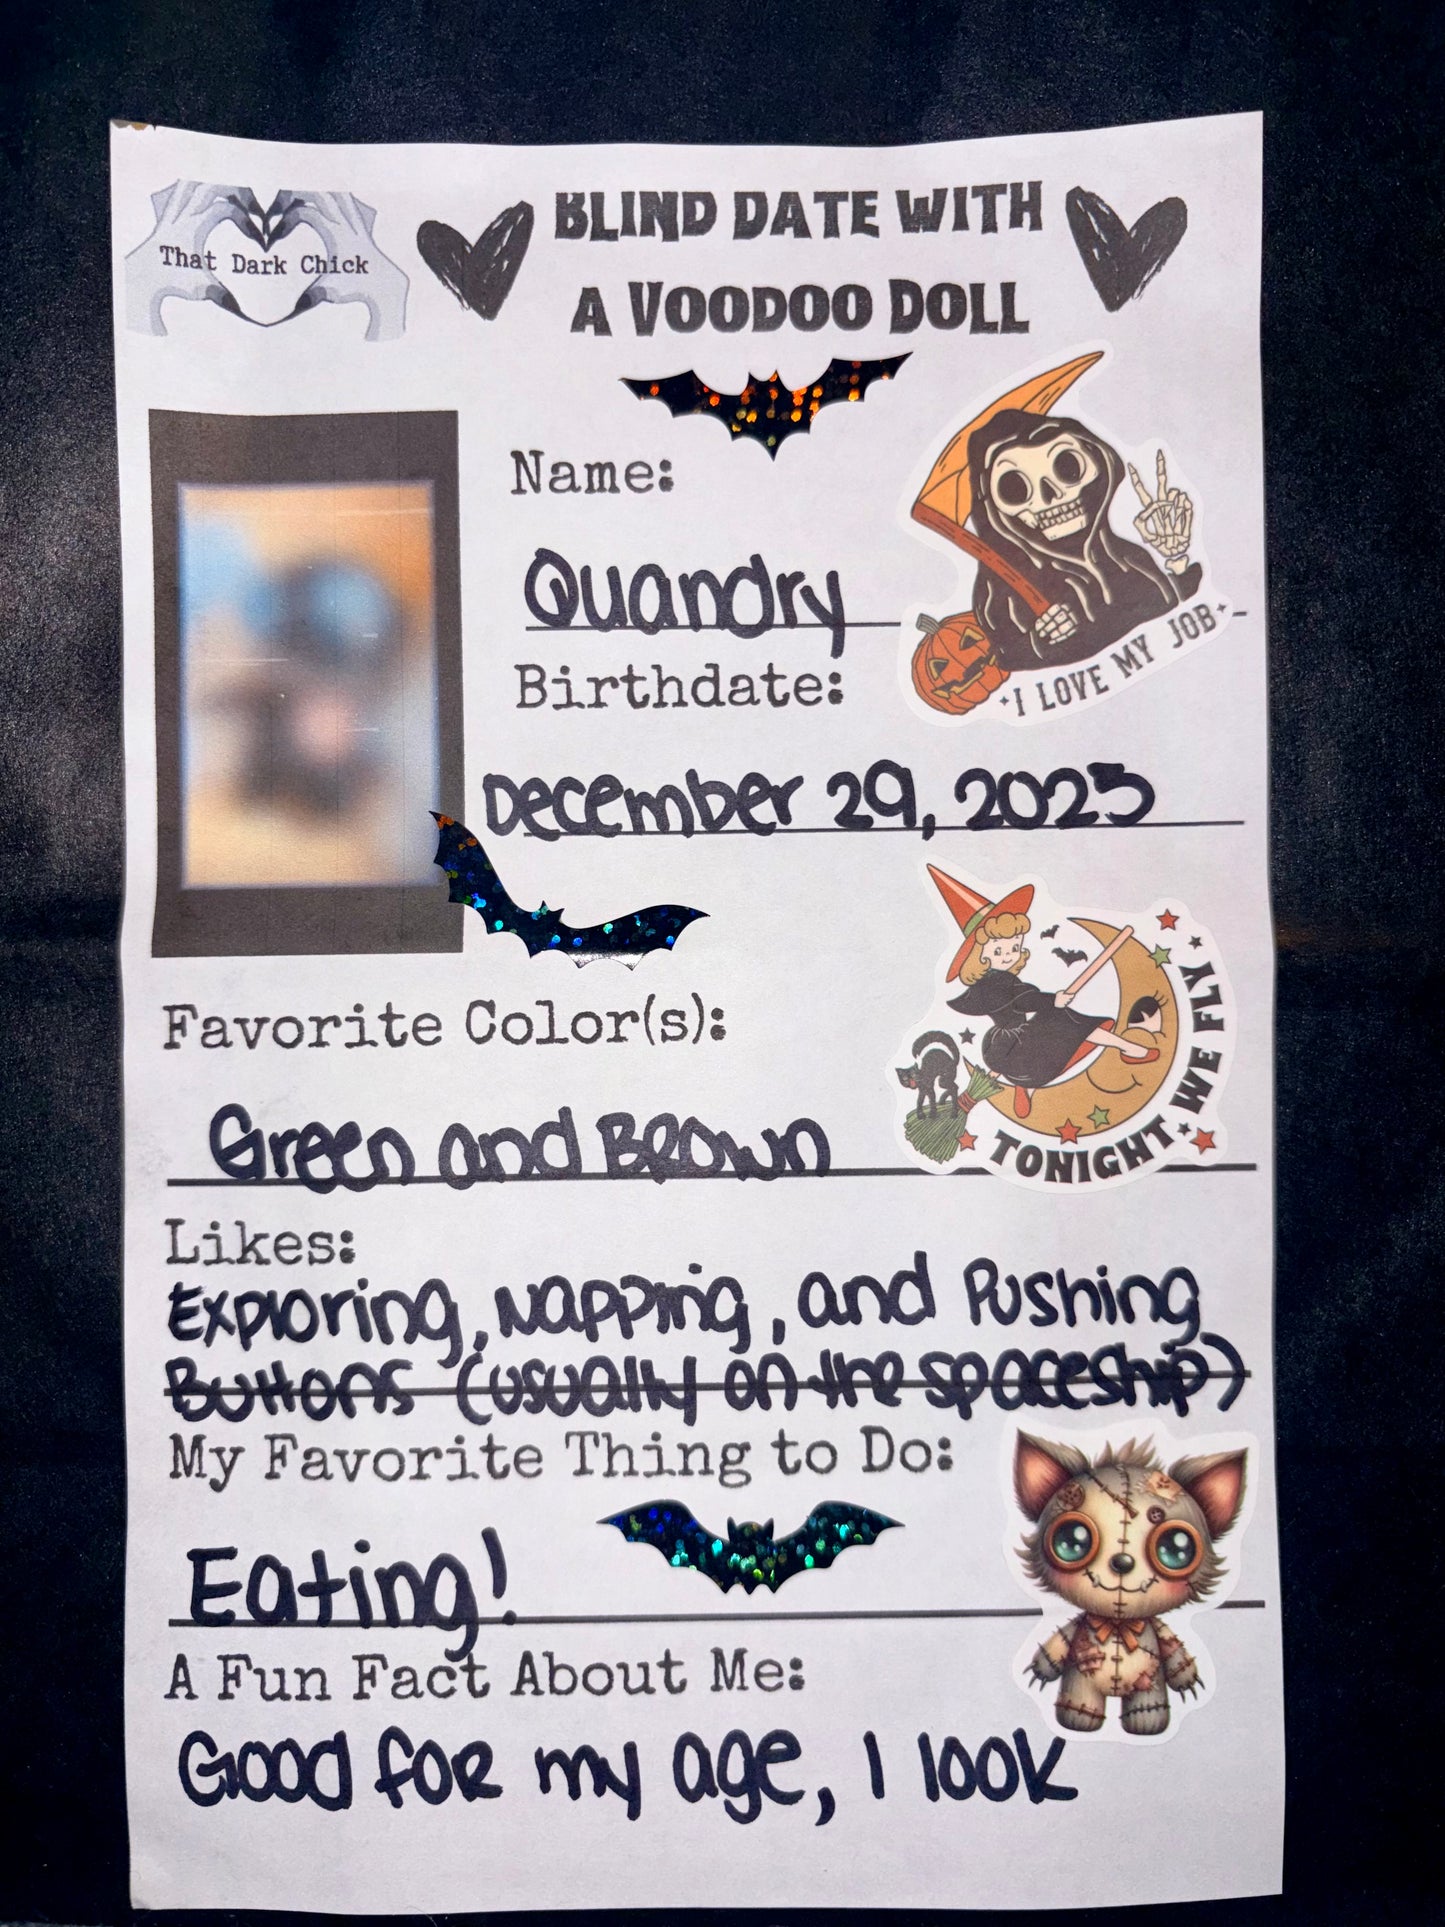 That Dark Chick
BLIND DATE WITH
A VOODOO DOLL
Name:
Quandry
I LOVE MY JOB
Birthdate:
December 29, 2023
Favorite Color(s):
Green and Brown
TONIGHT WE FLY
Likes:
Exploring, Napping, and Pushing
Buttons (usually on the spaceship)
My Favorite Thing to Do:
Eating!
A Fun Fact About Me:
Good for my age, I look